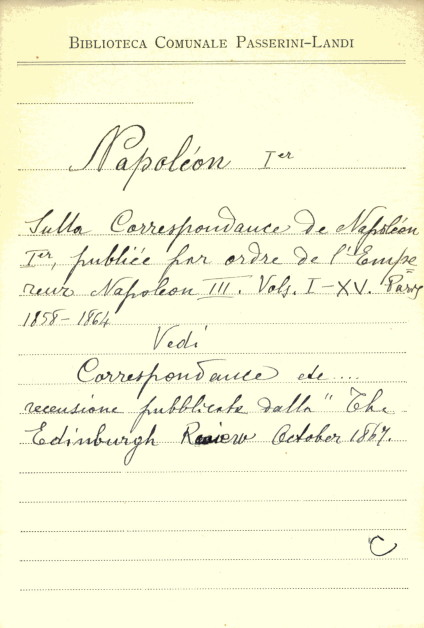 BIBLIOTECA COMUNALE PASSERINI-LANDI
Napoléon Ier
Sulla Correspondance de Napoléon
Ier, publiée par ordre de l'Empe=
reur Napoleon III. Vols. I-XV. Paris
1858-1864
Vedi
Correspondance etc...
recensione pubblicata dalla "The
Edinburgh Review October 1867.
C